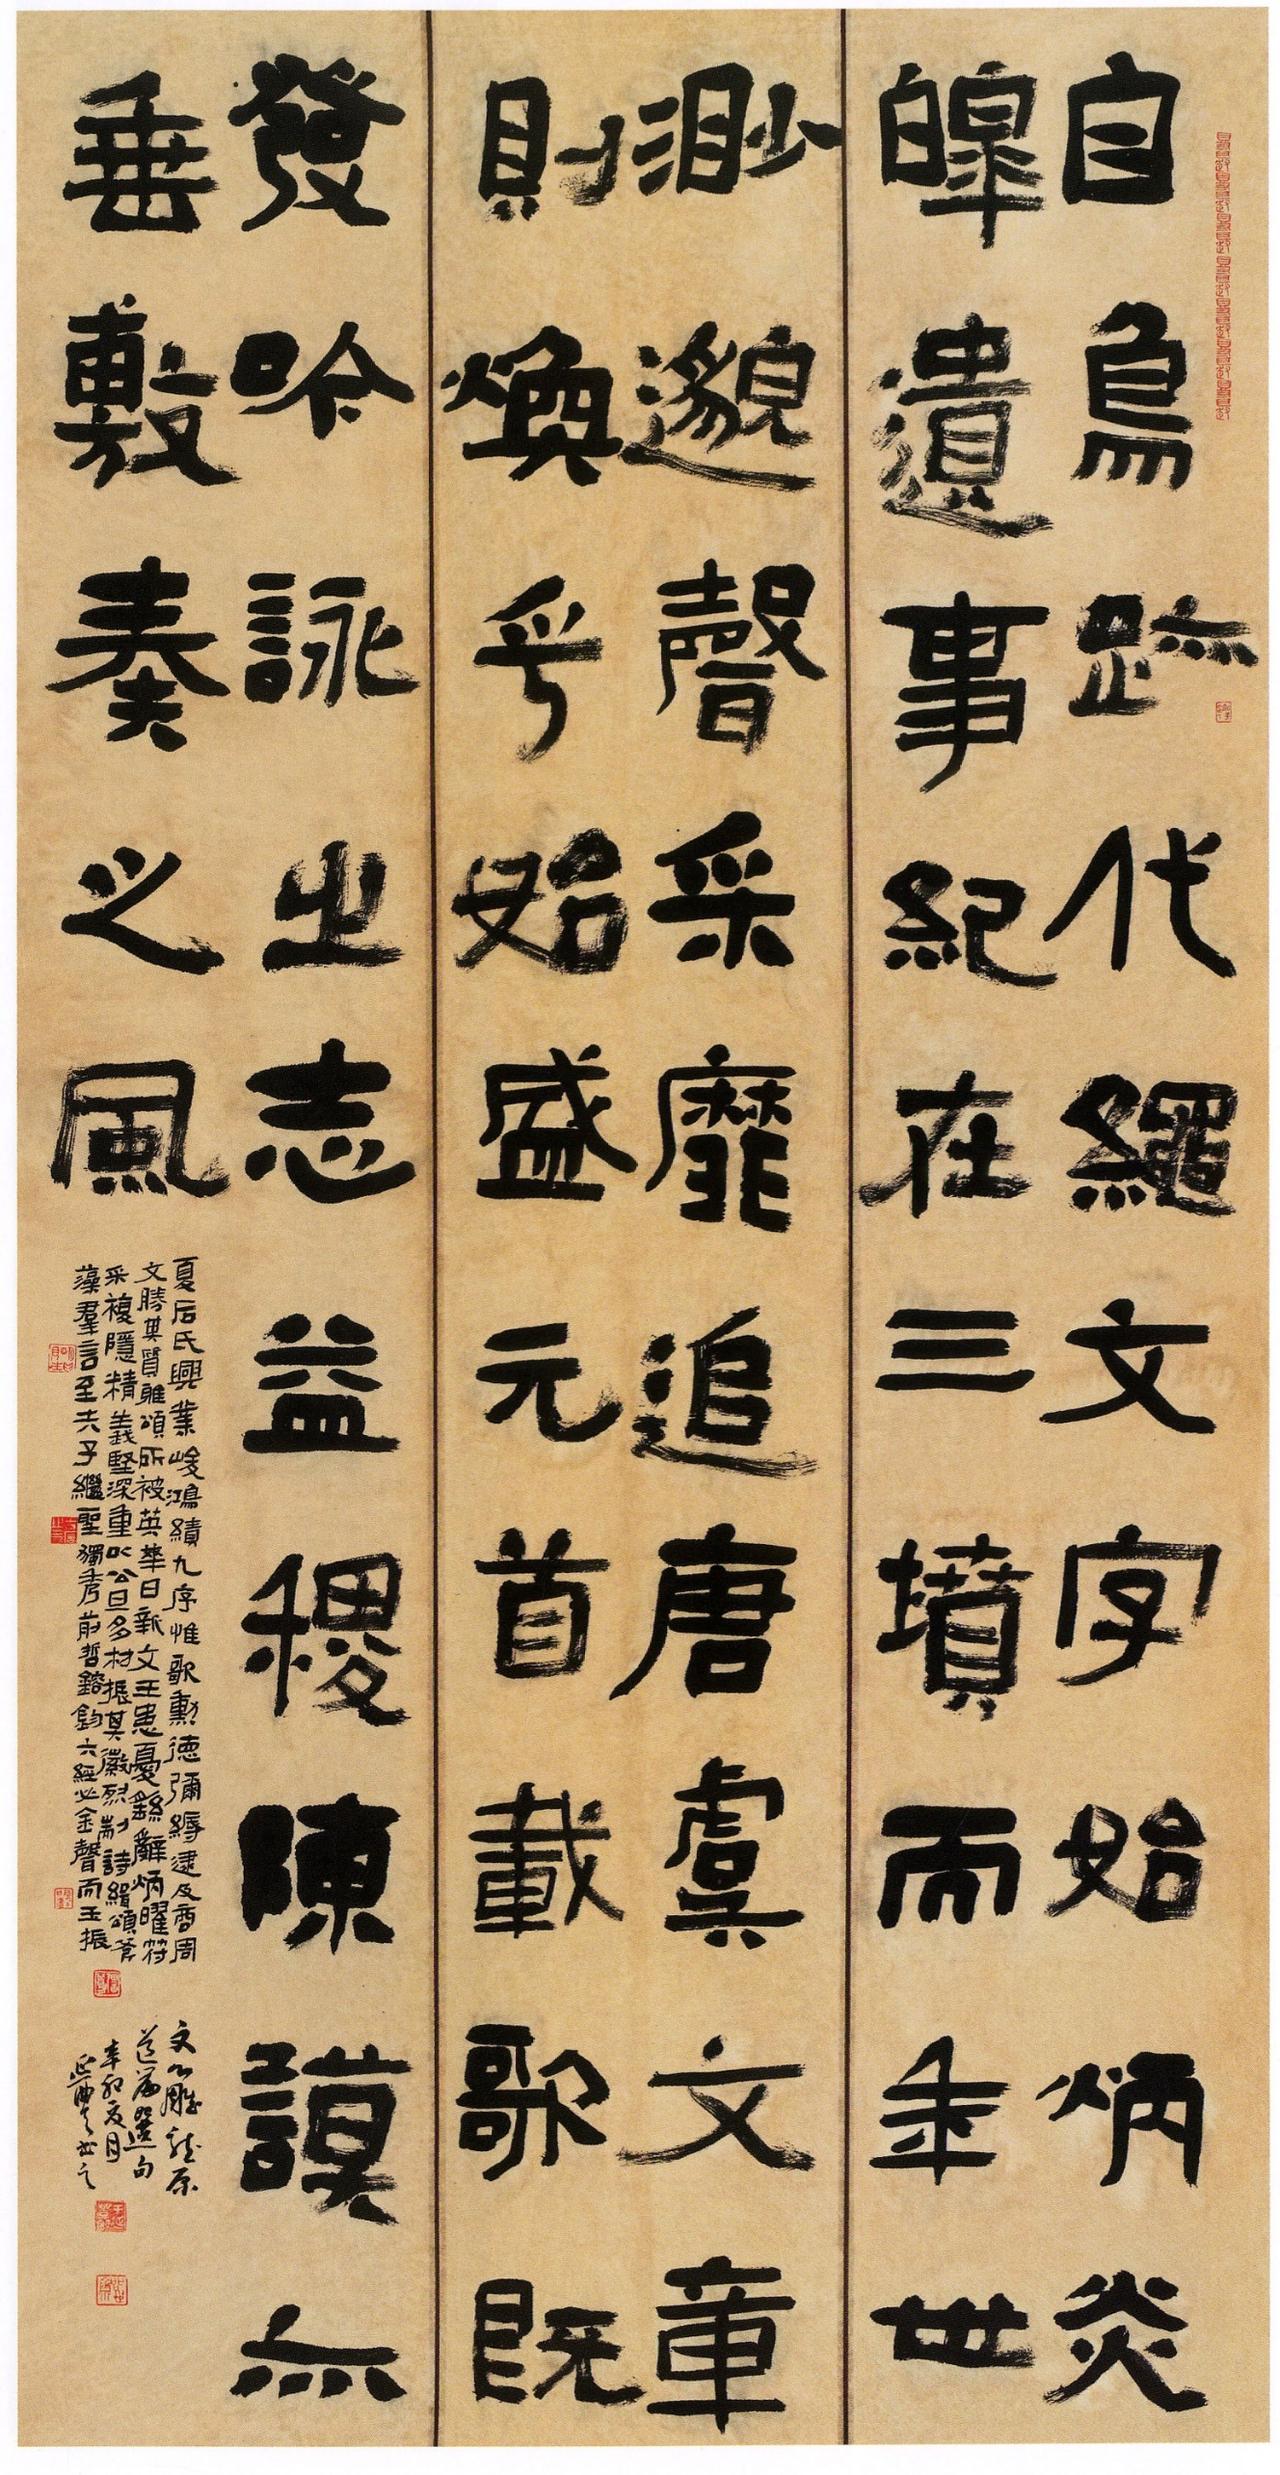 自鳥跡代繩文字始炳炎
皞遺事紀在三墳而年世
渺邈聲采靡追唐虞文章
則煥乎始盛元首載歌既
發吟詠之志益稷陳謨亦
垂敷奏之風
夏后氏興業峻鴻績九序惟歌勳德彌縟逮及商周
文勝其質雅頌所被英華日新文王患憂繇辭炳曜符
采複隱精義堅深重以公旦多材振其徽烈制詩緝頌斧
藻羣言至夫子繼聖獨秀前哲鎔鈞六經必金聲而玉振
文心雕龍原
道篇選句
辛卯夏月